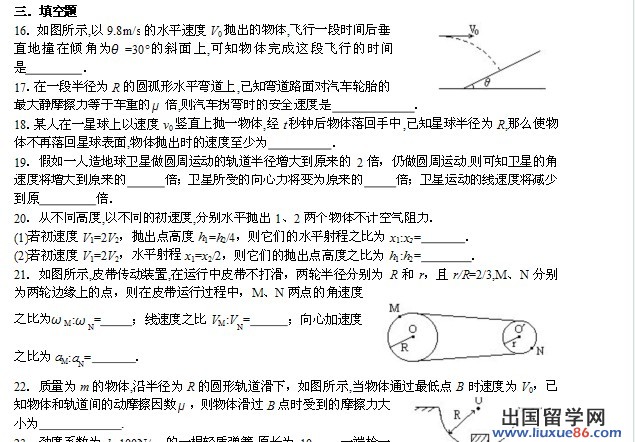 三. 填空题
16. 如图所示,以 9.8m/s 的水平速度 V₀抛出的物体,飞行一段时间后垂
直地撞在倾角为θ =30°的斜面上,可知物体完成这段飞行的时间
是________.
V₀
θ
17. 在一段半径为 R 的圆弧形水平弯道上,已知弯道路面对汽车轮胎的
最大静摩擦力等于车重的μ 倍,则汽车拐弯时的安全速度是____________.
18. 某人在一星球上以速度 v₀竖直上抛一物体,经 t秒钟后物体落回手中,已知星球半径为 R,那么使物
体不再落回星球表面,物体抛出时的速度至少为__________.
19. 假如一人造地球卫星做圆周运动的轨道半径增大到原来的 2 倍, 仍做圆周运动.则可知卫星的角
速度将增大到原来的______倍; 卫星所受的向心力将变为原来的_____倍; 卫星运动的线速度将减少
到原________倍.
20. 从不同高度,以不同的初速度,分别水平抛出 1、2 两个物体不计空气阻力.
(1)若初速度 V₁=2V₂, 抛出点高度 h₁=h₂/4, 则它们的水平射程之比为 x₁:x₂=_______.
(2)若初速度 V₁=2V₂, 水平射程 x₁=x₂/2, 则它们的抛出点高度之比为 h₁:h₂=_______.
21. 如图所示,皮带传动装置,在运行中皮带不打滑, 两轮半径分别为 R 和 r, 且 r/R=2/3,M、N 分别
为两轮边缘上的点, 则在皮带运行过程中, M、N 两点的角速度
之比为ω M:ω N=_____; 线速度之比 VM:VN=______; 向心加速度
之比为 aM:aN=_______.
M
O
O'
R
r
N
22. 质量为 m 的物体,沿半径为 R 的圆形轨道滑下, 如图所示,当物体通过最低点 B 时速度为 V₀, 已
知物体和轨道间的动摩擦因数μ, 则物体滑过 B 点时受到的摩擦力大
小为____________.
R
出国留学网
www.liuxue86.com